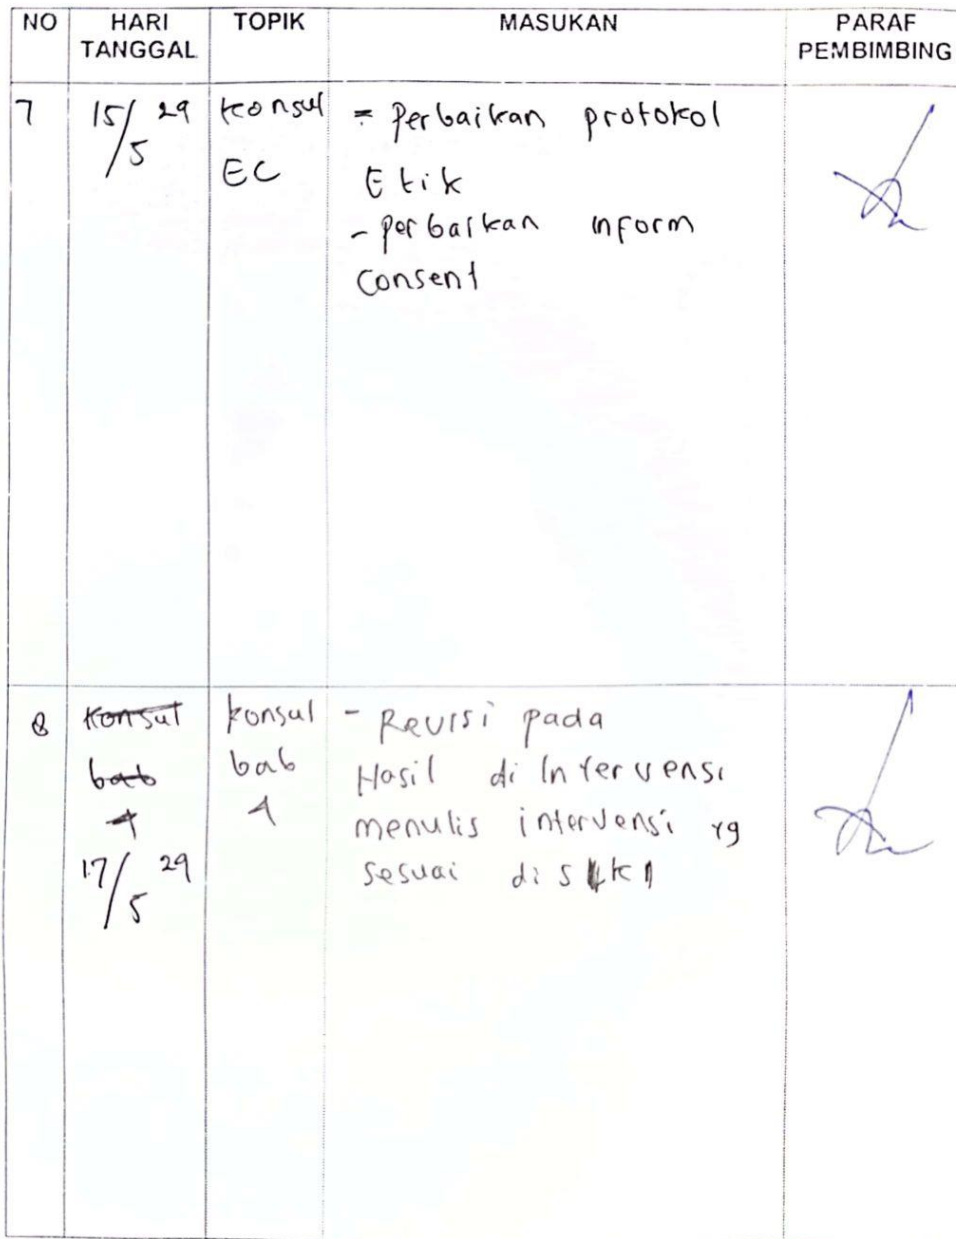 NO HARI TANGGAL TOPIK MASUKAN PARAF PEMBIMBING
7 15/5 29 konsul = Perbaikan protokol
EC Etik
- perbaikan inform
consent
8 Konsul konsul - Revisi pada
bab bab Hasil di Intervensi
4 4 menulis intervensi yg
17/5 29 sesuai di